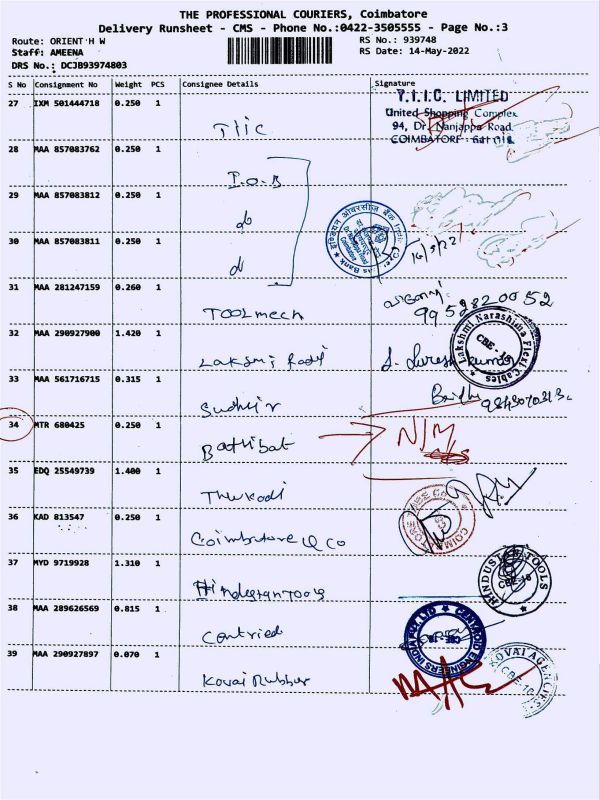 THE PROFESSIONAL COURIERS, Coimbatore
Delivery Runsheet - CMS - Phone No.:0422-3505555 - Page No.:3
Route: ORIENT H W
Staff: AMEENA
DRS No.: DCJB93974803
RS No.: 939748
RS Date: 14-May-2022
S No Consignment No Weight PCS Consignee Details Signature
27 IXM 501444718 0.250 1
T.I.I.C. LIMITED
United Shopping Complex
94, Dr. Nanjappa Road
COIMBATORE
TIic
28 MAA 857083762 0.250 1
I.O.B
29 MAA 857083812 0.250 1
d
30 MAA 857083811 0.250 1
d
16/5/22
31 MAA 281247159 0.260 1
TOOLmech
9952820052
32 MAA 290927900 1.420 1
Laksmi
Lakshmi Narashima Flexi Cables
CBE
33 MAA 561716715 0.315 1
Sudhir
34 MTR 680425 0.250 1
Bathibat
N/M
35 EDQ 25549739 1.400 1
36 KAD 813547 0.250 1
Coimbatore & co
37 MYD 9719928 1.310 1
Hindustan Tools
HINDUSTAN TOOLS
CBE-18
38 MAA 289626569 0.815 1
Contried
CENTROID ENGINEERS INDIA PVT LTD
CBE-18
39 MAA 290927897 0.070 1
Kovai Rubber
KOVAI AGENCIES
CBE-18